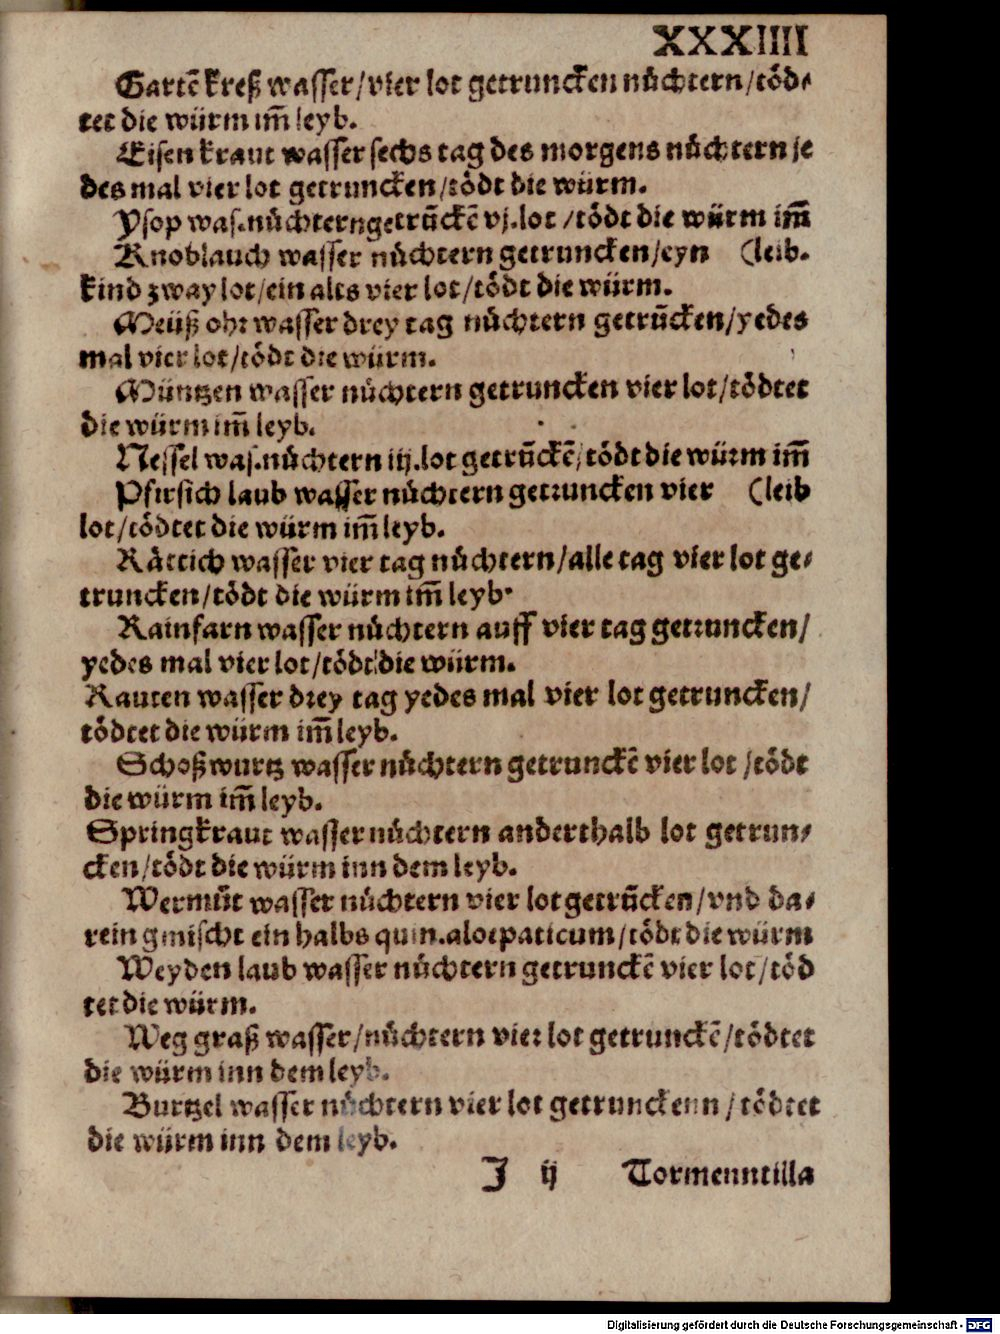 XXXIIII
Gartē kreß wasser/vier lot getruncken nüchtern/töd⸗
tet die würm im̄ leyb.
Eisen kraut wasser sechs tag des morgens nüchtern je
des mal vier lot getruncken/tödt die würm.
Ysop was.nüchterngetrūckē vj.lot /tödt die würm im̄
Knoblauch wasser nüchtern getruncken/eyn (leib.
kind zway lot/ein alts vier lot/tödt die würm.
Meüß ohr wasser drey tag nüchtern getrūcken/yedes
mal vier lot/tödt die würm.
Müntzen wasser nüchtern getruncken vier lot/tödtet
die würm im̄ leyb.
Nessel was.nüchtern iij.lot getrūckē/tödt die würm im̄
Pfirsich laub wasser nüchtern getruncken vier (leib
lot/tödtet die würm im̄ leyb.
Rättich wasser vier tag nüchtern/alle tag vier lot ge⸗
truncken/tödt die würm im̄ leyb.
Rainfarn wasser nüchtern auff vier tag getruncken/
yedes mal vier lot/tödt die würm.
Rauten wasser drey tag yedes mal vier lot getruncken/
tödtet die würm im̄ leyb.
Schoßwurtz wasser nüchtern getrunckē vier lot /tödt
die würm im̄ leyb.
Springkraut wasser nüchtern anderthalb lot getrun⸗
cken/tödt die würm inn dem leyb.
Wermůt wasser nüchtern vier lot getrūcken/vnd da⸗
rein gmischt ein halbs quin.aloepaticum/tödt die würm
Weyden laub wasser nüchtern getrunckē vier lot/töd
tet die würm.
Weg graß wasser/nüchtern vier lot getrunckē/tödtet
die würm inn dem leyb.
Burtzel wasser nüchtern vier lot getrunckenn/tödtet
die würm inn dem leyb.
J ij Tormenntilla
Digitalisierung gefördert durch die Deutsche Forschungsgemeinschaft - DFG